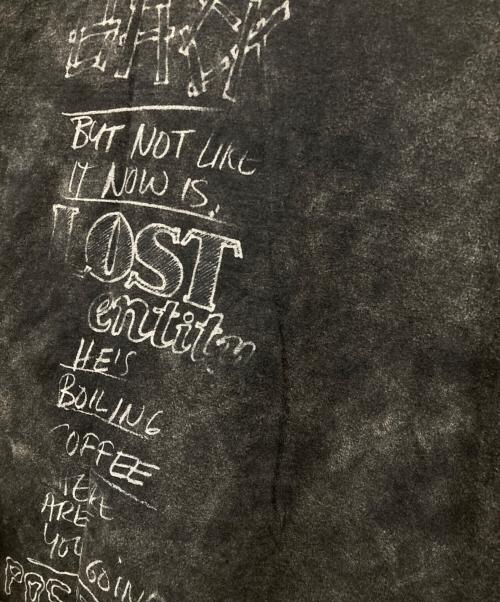 BUT NOT LIKE
IT NOW IS.
LOST
entity
HE'S
BOILING
COFFEE
ARE
YOU GOING